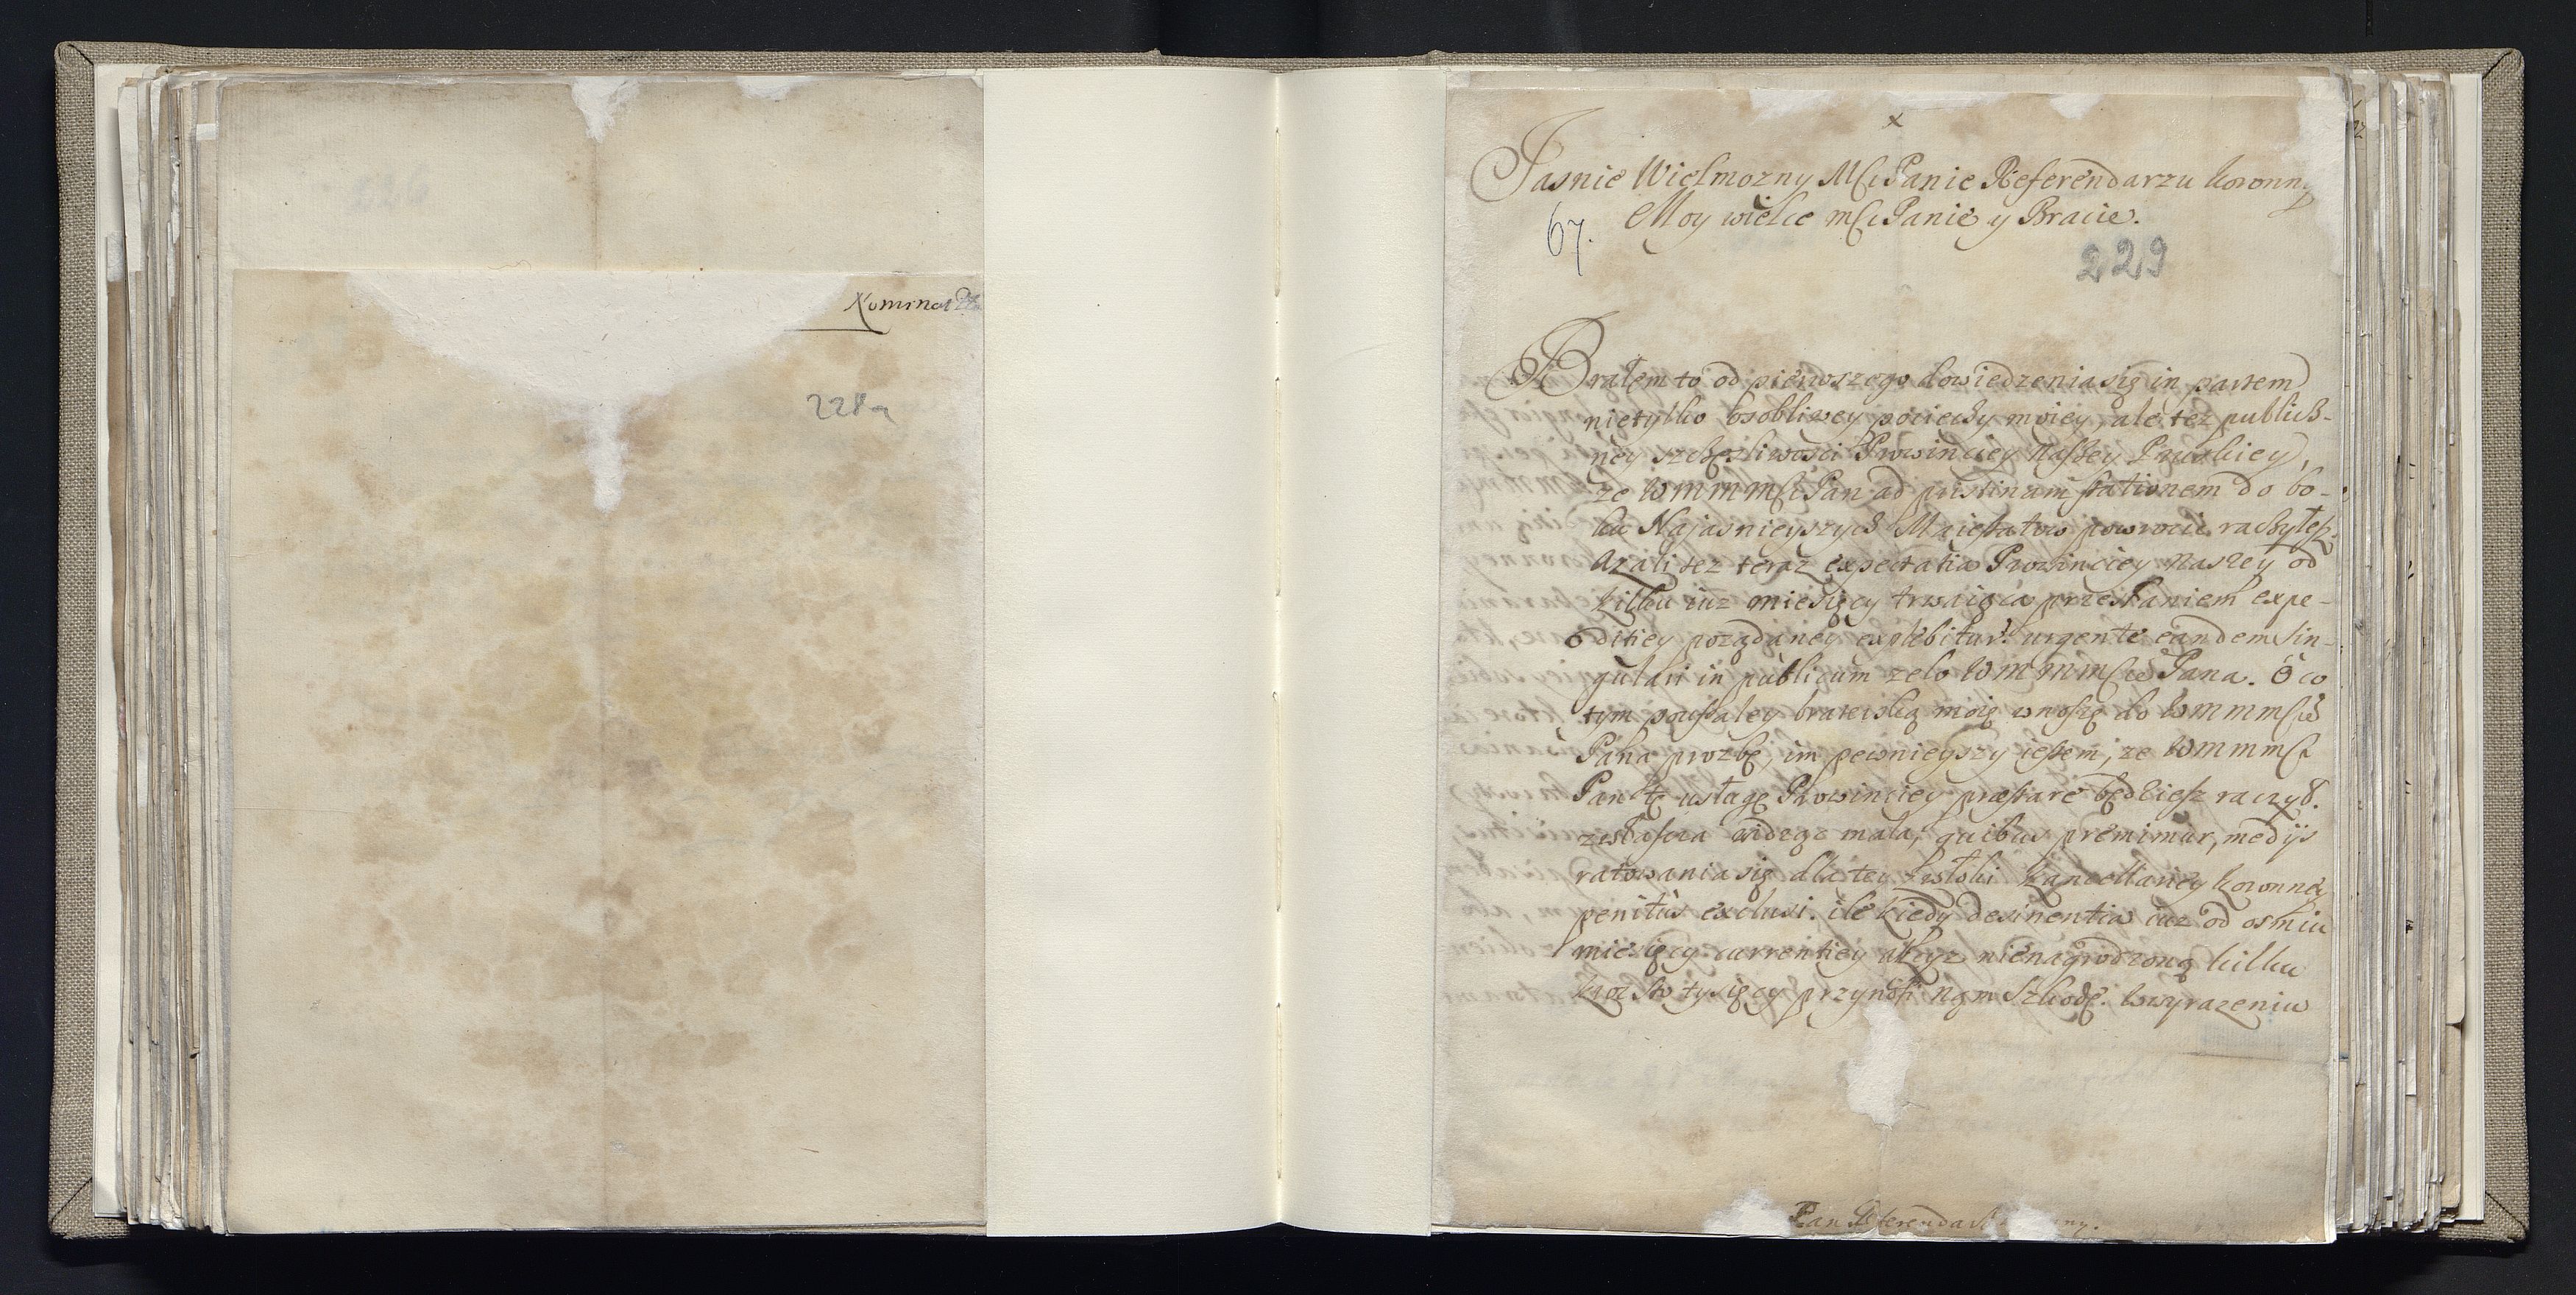 Nominat
228a
x
Jasnie Wielmozny Mći Panie Referendarzu koronny
Moy wielce mći Panie y Bracie.
67.
229
Brałem to od pierwszego dowiedzenia się in partem
nietylko osobliwey pociechy moiey, ale tez publich-
ney szczęsliwosci Prowinciey Naszey Pruskiey,
ze WMMMći Pan ad pristinam stationem do bo-
ku Najasnieyszych Maiestatow powrocic raczyłes.
Azali tez teraz expectatia Prowinciey naszey od
kilku iuz miesięcy trwaiąca przesłaniem expe-
ditiey poządaney explebitur: urgente eandem sin-
gulari in publicum zelo WMMMći Pana. O co
tym poufałey braterską moię wnoszę do WMMMći
Pana prozbę, im pewnieyszy iestem, ze WMMMći
Pan tę usługę Prowinciey præstare będziesz raczył.
zwłaszcza widząc mala, quibus premimur, medijs
ratowania się dla tey zwłoki Kancellariey koronney
penitus exclusi. ile kiedy desinentia iuz od osmiu
miesięcy currentiey akcyz nienagrodzoną kilku
kroc sto tysięcy przynosi nam szkodę. W wyrazeniu
Pan Referendarz ny.